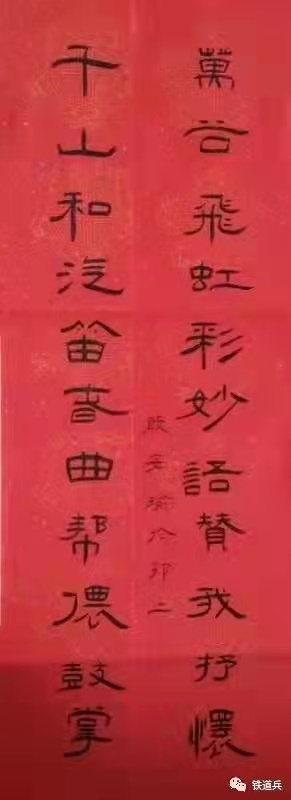 萬谷飛虹彩妙語賛我抒懷
千山和汽笛音曲帮儂鼓掌
铁道兵